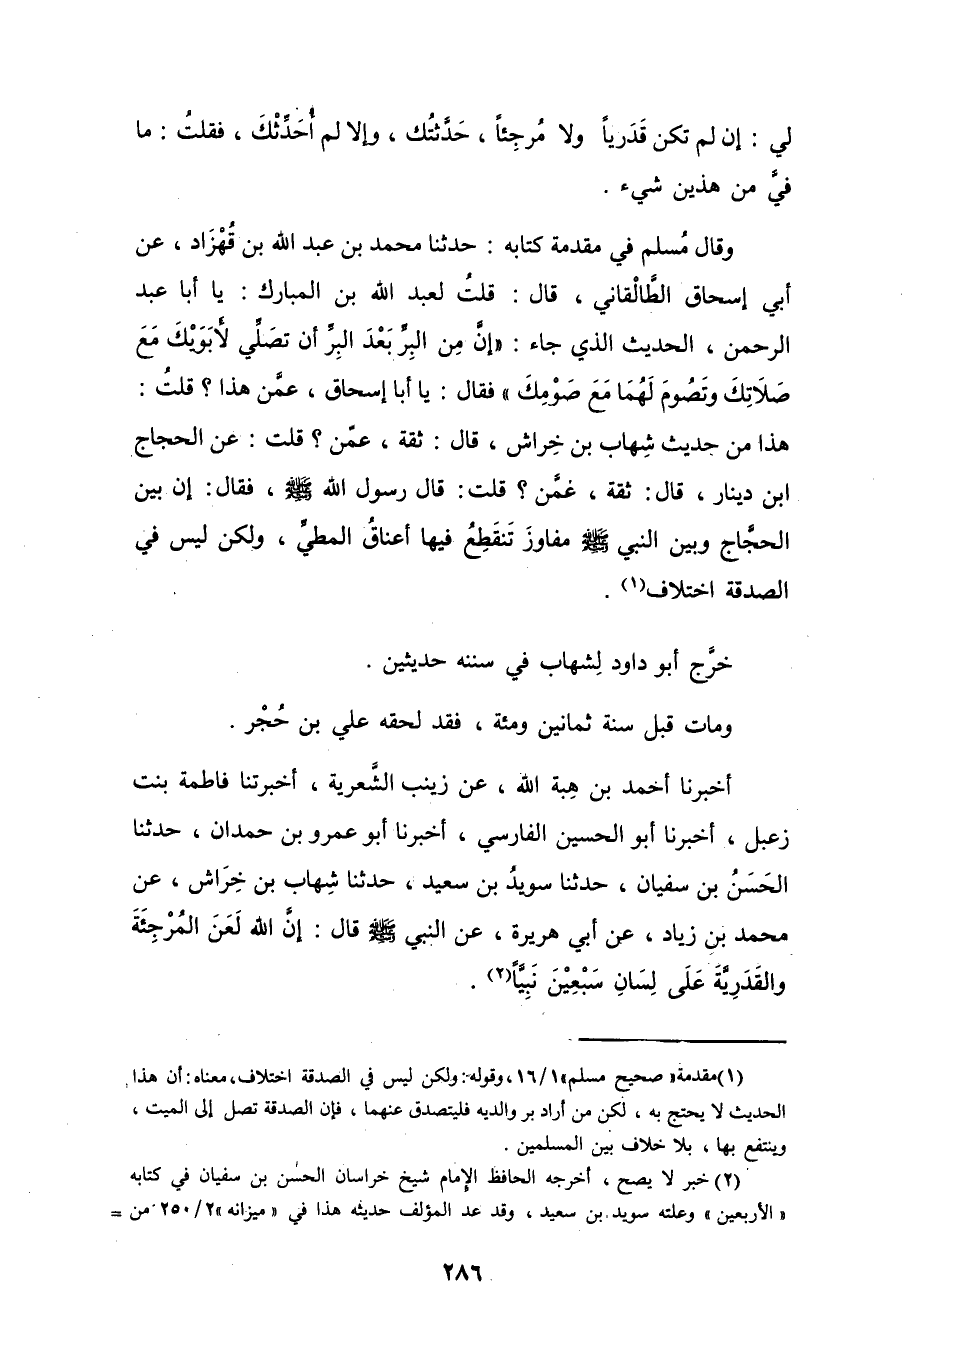 لي : إن لم تكن قَدَرياً ولا مُرجِئاً ، حَدَّثتُك ، وإلا لم أُحَدِّثْكَ ، فقلتُ : ما
فيَّ من هذين شيء .
وقال مُسلم في مقدمة كتابه : حدثنا محمد بن عبد الله بن قُهْزَاد ، عن
أبي إسحاق الطَّالْقاني ، قال : قلتُ لعبد الله بن المبارك : يا أبا عبد
الرحمن ، الحديث الذي جاء : «إنَّ مِن البِرِّ بَعْدَ البِرِّ أن تصَلِّي لأَبَوَيْكَ مَعَ
صَلَاتِكَ وتَصُومَ لَهُمَا مَعَ صَوْمِكَ » فقال : يا أبا إسحاق ، عمَّن هذا ؟ قلتُ :
هذا من حديث شِهاب بن خِراش ، قال : ثقة ، عمّن ؟ قلت : عن الحجاج
ابن دينار ، قال: ثقة ، عمَّن ؟ قلت: قال رسول الله ﷺ ، فقال: إن بين
الحجَّاج وبين النبي ﷺ مفاوزَ تَنقَطِعُ فيها أعناقُ المطيِّ ، ولكن ليس في
الصدقة اختلاف(١) .
خرَّج أبو داود لِشهاب في سننه حديثين .
ومات قبل سنة ثمانين ومئة ، فقد لحقه علي بن حُجْر .
أخبرنا أحمد بن هِبة الله ، عن زينب الشَّعرية ، أخبرتنا فاطمة بنت
زعبل ، أخبرنا أبو الحسين الفارسي ، أخبرنا أبو عمرو بن حمدان ، حدثنا
الحَسَنُ بن سفيان ، حدثنا سويدُ بن سعيد ، حدثنا شِهاب بن خِرَاش ، عن
محمد بن زياد ، عن أبي هريرة ، عن النبي ﷺ قال : إنَّ الله لَعَنَ المُرْجِئَةَ
والقَدَرِيَّةَ عَلَى لِسَانِ سَبْعِيْنَ نَبِيَّاً(٢) .
(١)مقدمة« صحيح مسلم»١٦/١ ، وقوله: ولكن ليس في الصدقة اختلاف ، معناه: أن هذا
الحديث لا يحتج به ، لكن من أراد بر والديه فليتصدق عنهما ، فإن الصدقة تصل إلى الميت ،
وينتفع بها ، بلا خلاف بين المسلمين .
(٢) خبر لا يصح ، أخرجه الحافظ الإمام شيخ خراسان الحسن بن سفيان في كتابه
« الأربعين » وعلته سويد بن سعيد ، وقد عد المؤلف حديثه هذا في « ميزانه »٢/ ٢٥٠ من =
٢٨٦